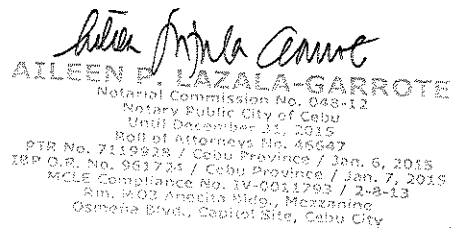 AILEEN P. LAZALA-GARROTE
Notarial Commission No. 048-12
Notary Public City of Cebu
Until December 31, 2015
Roll of Attorneys No. 46647
PTR No. 7119928 / Cebu Province / Jan. 6, 2015
IBP O.R. No. 961724 / Cebu Province / Jan. 7, 2015
MCLE Compliance No. IV-0011793 / 2-8-13
Rm. M03 Anecita Bldg., Mezzanine
Osmeña Blvd., Capitol Site, Cebu City